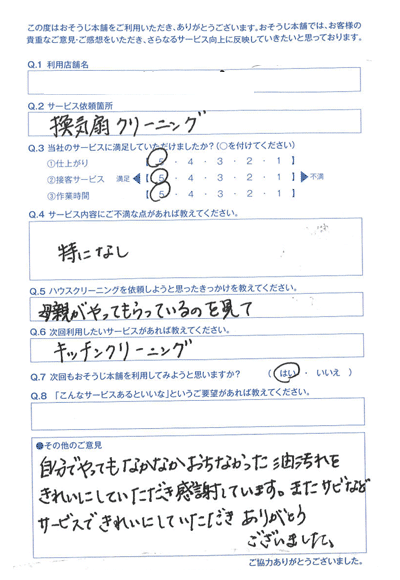 この度はおそうじ本舗をご利用いただき、ありがとうございます。おそうじ本舗では、お客様の
貴重なご意見・ご感想をいただき、さらなるサービス向上に反映していきたいと思っております。
Q.1 利用店舗名
Q.2 サービス依頼箇所
換気扇クリーニング
Q.3 当社のサービスに満足していただけましたか？(○を付けてください)
①仕上がり 【 5 ・ 4 ・ 3 ・ 2 ・ 1 】
②接客サービス 満足 ◀【 5 ・ 4 ・ 3 ・ 2 ・ 1 】▶ 不満
③作業時間 【 5 ・ 4 ・ 3 ・ 2 ・ 1 】
Q.4 サービス内容にご不満な点があれば教えてください。
特になし
Q.5 ハウスクリーニングを依頼しようと思ったきっかけを教えてください。
母親がやってもらっているのを見て
Q.6 次回利用したいサービスがあれば教えてください。
キッチンクリーニング
Q.7 次回もおそうじ本舗を利用してみようと思いますか？ ( はい ・ いいえ )
Q.8 「こんなサービスあるといいな」というご要望があれば教えてください。
●その他のご意見
自分でやってもなかなかおちなかった油汚れを
きれいにしていただき感謝しています。またサビなど
サービスできれいにしていただき ありがとう
ございました。
ご協力ありがとうございました。